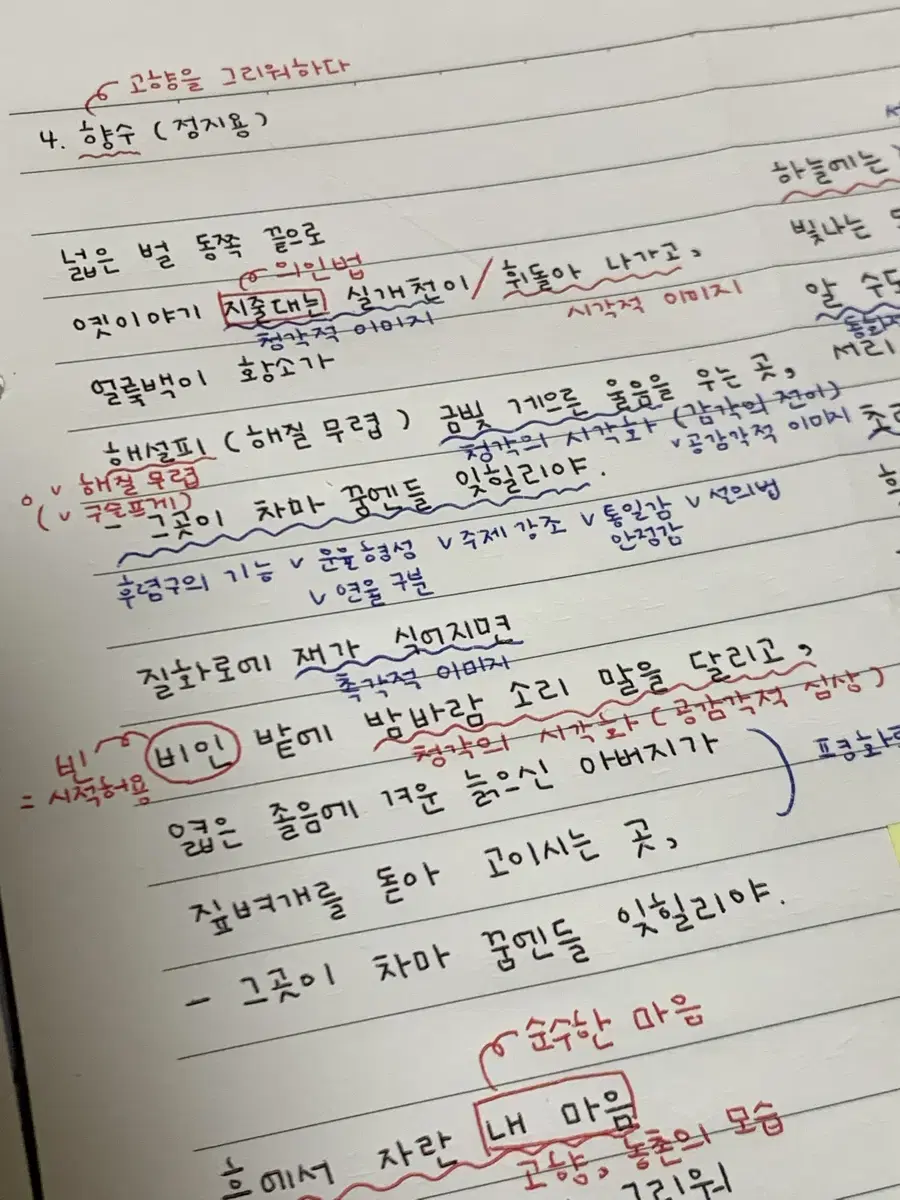 고향을 그리워하다
4. 향수 (정지용)
넓은 벌 동쪽 끝으로
의인법
옛이야기 지줄대는 실개천이 / 휘돌아 나가고,
청각적 이미지
시각적 이미지
얼룩백이 황소가
해설피 (해질 무렵) 금빛 게으른 울음을 우는 곳,
∨ 해질 무렵
청각의 시각화 (감각의 전이)
∨ 공감각적 이미지
(∨ 구슬프게)
- 그곳이 차마 꿈엔들 잊힐리야.
후렴구의 기능 ∨ 운율 형성 ∨ 주제 강조 ∨ 통일감 ∨ 선의법
안정감
∨ 연을 구분
질화로에 재가 식어지면
촉각적 이미지
비인 밭에 밤바람 소리 말을 달리고,
빈
= 시적허용
청각의 시각화 (공감각적 심상)
엷은 졸음에 겨운 늙으신 아버지가
짚벼개를 돋아 고이시는 곳,
- 그곳이 차마 꿈엔들 잊힐리야.
순수한 마음
흙에서 자란 내 마음
고향, 농촌의 모습
그리워
하늘에는
빛나는
알 수도
서리